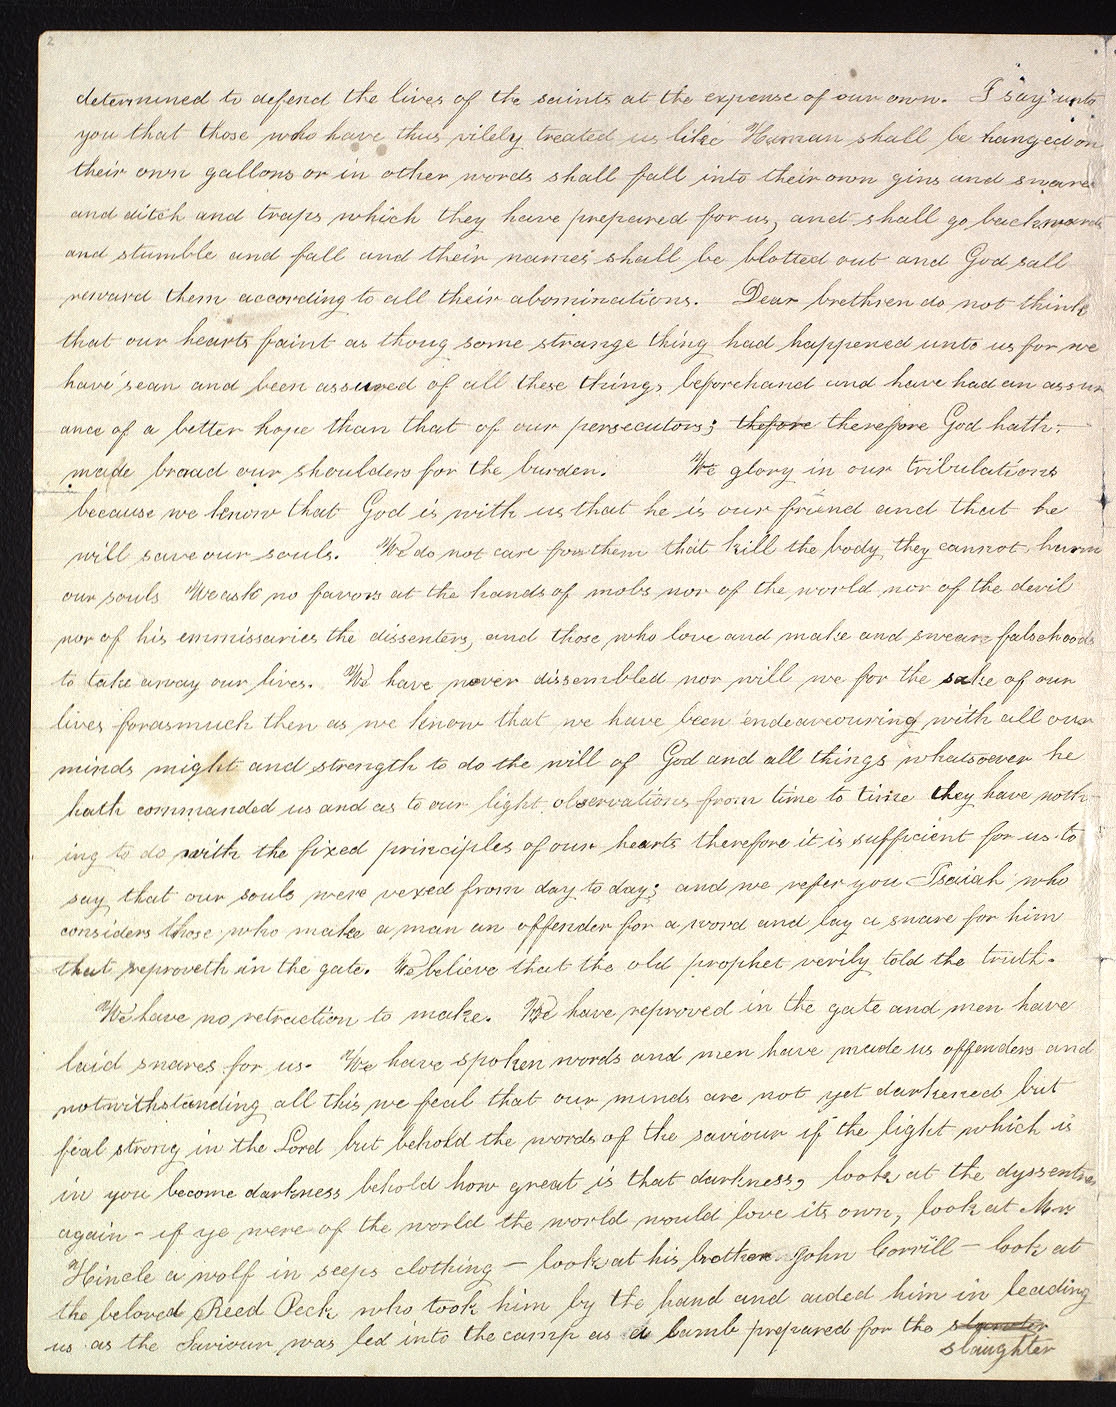 2
determined to defend the lives of the saints at the expense of our own. I say unto
you that those who have thus vilely treated us like Haman shall be hanged on
their own gallons or in other words shall fall into their own gins and snares
and ditch and traps which they have prepared for us, and shall go backwards
and stumble and fall and their names shall be blotted out and God sall
reward them according to all their abominations. Dear brethren do not think
that our hearts faint as thoug some strange thing had happened unto us for we
have sean and been assured of all these things beforehand and have had an assur
ance of a better hope than that of our persecutors; thefore therefore God hath-
made broad our shoulders for the burden. We glory in our tribulations
because we know that God is with us that he is our friend and that he
will save our souls. We do not care for them that kill the body they cannot harm
our souls We ask no favors at the hands of mobs nor of the world nor of the devil
nor of his emmissaries the dissenters, and those who love and make and swear falsehoods
to take away our lives. We have never dissembled nor will we for the sake of our
lives forasmuch then as we know that we have been endeaveouring with all our
minds might and strength to do the will of God and all things whatsoever he
hath commanded us and as to our light observations from time to time they have noth-
ing to do with the fixed principles of our hearts therefore it is sufficient for us to
say that our souls were vexed from day to day; and we refer you Isaiah who
considers those who make a man an offender for a word and lay a snare for him
that reproveth in the gate. We believe that the old prophet verily told the truth.
We have no retraction to make. We have reproved in the gate and men have
laid snares for us. We have spoken words and men have made us offenders and
notwithstanding all this we feal that our minds are not yet darkened but
feal strong in the Lord but behold the words of the saviour if the light which is
in you become darkness behold how great is that darkness, look at the dyssenters
again - if ye were of the world the world would love its own, look at Mr
Hincle a wolf in seeps clothing - look at his brother John Corrill - look at
the beloved Reed Peck who took him by the hand and aided him in leading
us as the Saviour was led into the camp as a Lamb prepared for the
slaughter